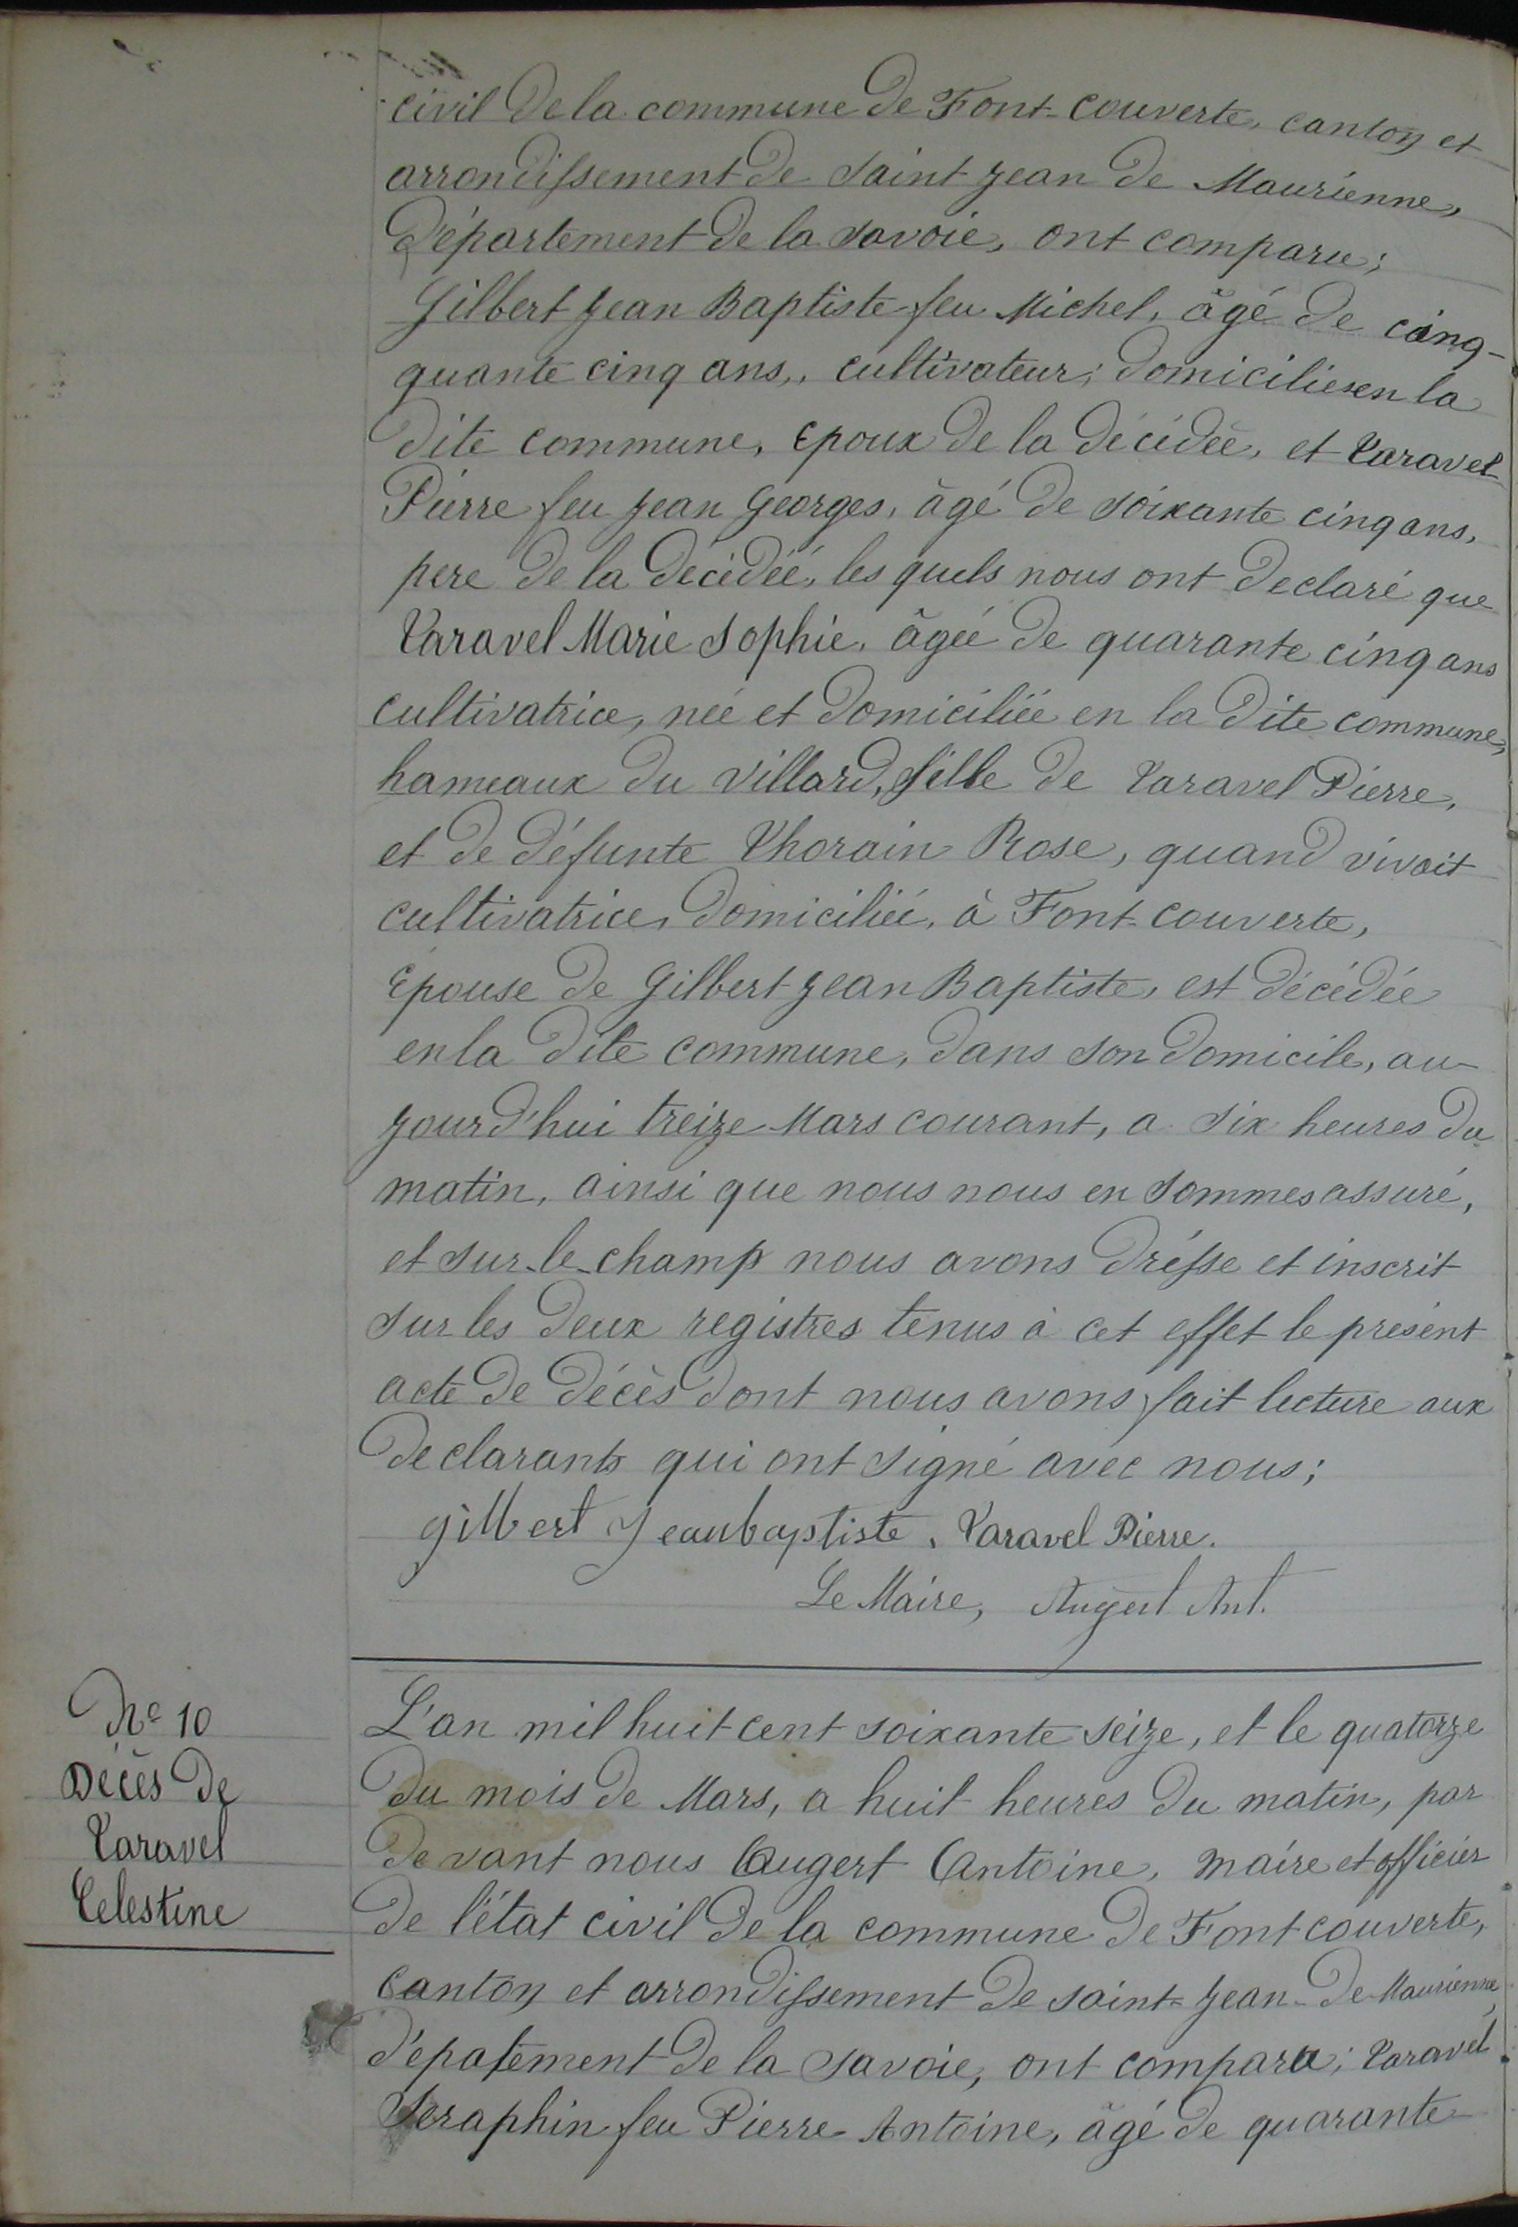 civil de la commune de Font-couverte, canton et
arrondissement de Saint Jean de Maurienne,
département de la Savoie, ont comparu;
Gilbert Jean Baptiste feu Michel, âgé de cinq-
quante cinq ans, cultivateur, domicilié en la
dite commune, Epoux de la décédée, et Varavel
Pierre feu Jean Georges, âgé de soixante cinq ans,
pere de la décédée, les quels nous ont declaré que
Varavel Marie Sophie, âgée de quarante cinq ans
cultivatrice, née et domiciliée en la dite commune,
hameaux du villard, fille de Varavel Pierre,
et de défunte Thorain Rose, quand vivait
cultivatrice, domiciliée, à Font-couverte,
Epouse de Gilbert Jean Baptiste, est décédée
en la dite commune, dans son domicile, au-
jourd'hui treize Mars courant, a six heures du
matin, ainsi que nous nous en sommes assuré,
et sur-le-champ nous avons drésse et inscrit
sur les deux registres tenus à cet effet le présent
acte de décès dont nous avons fait lecture aux
declarants qui ont signé avec nous;
gilbert Jeanbaptiste. Varavel Pierre.
Le Maire, Augert Ant.
No 10
Décès de
Varavel
Celestine
L'an mil huit cent soixante seize, et le quatorze
du mois de Mars, a huit heures du matin, par
devant nous Augert Antoine, maire et officier
de l'état civil de la commune de Font couverte,
Canton et arrondissement de saint-Jean-de-Maurienne,
dépatement de la Savoie, ont comparu; Varavel
Seraphin feu Pierre Antoine, âgé de quarante